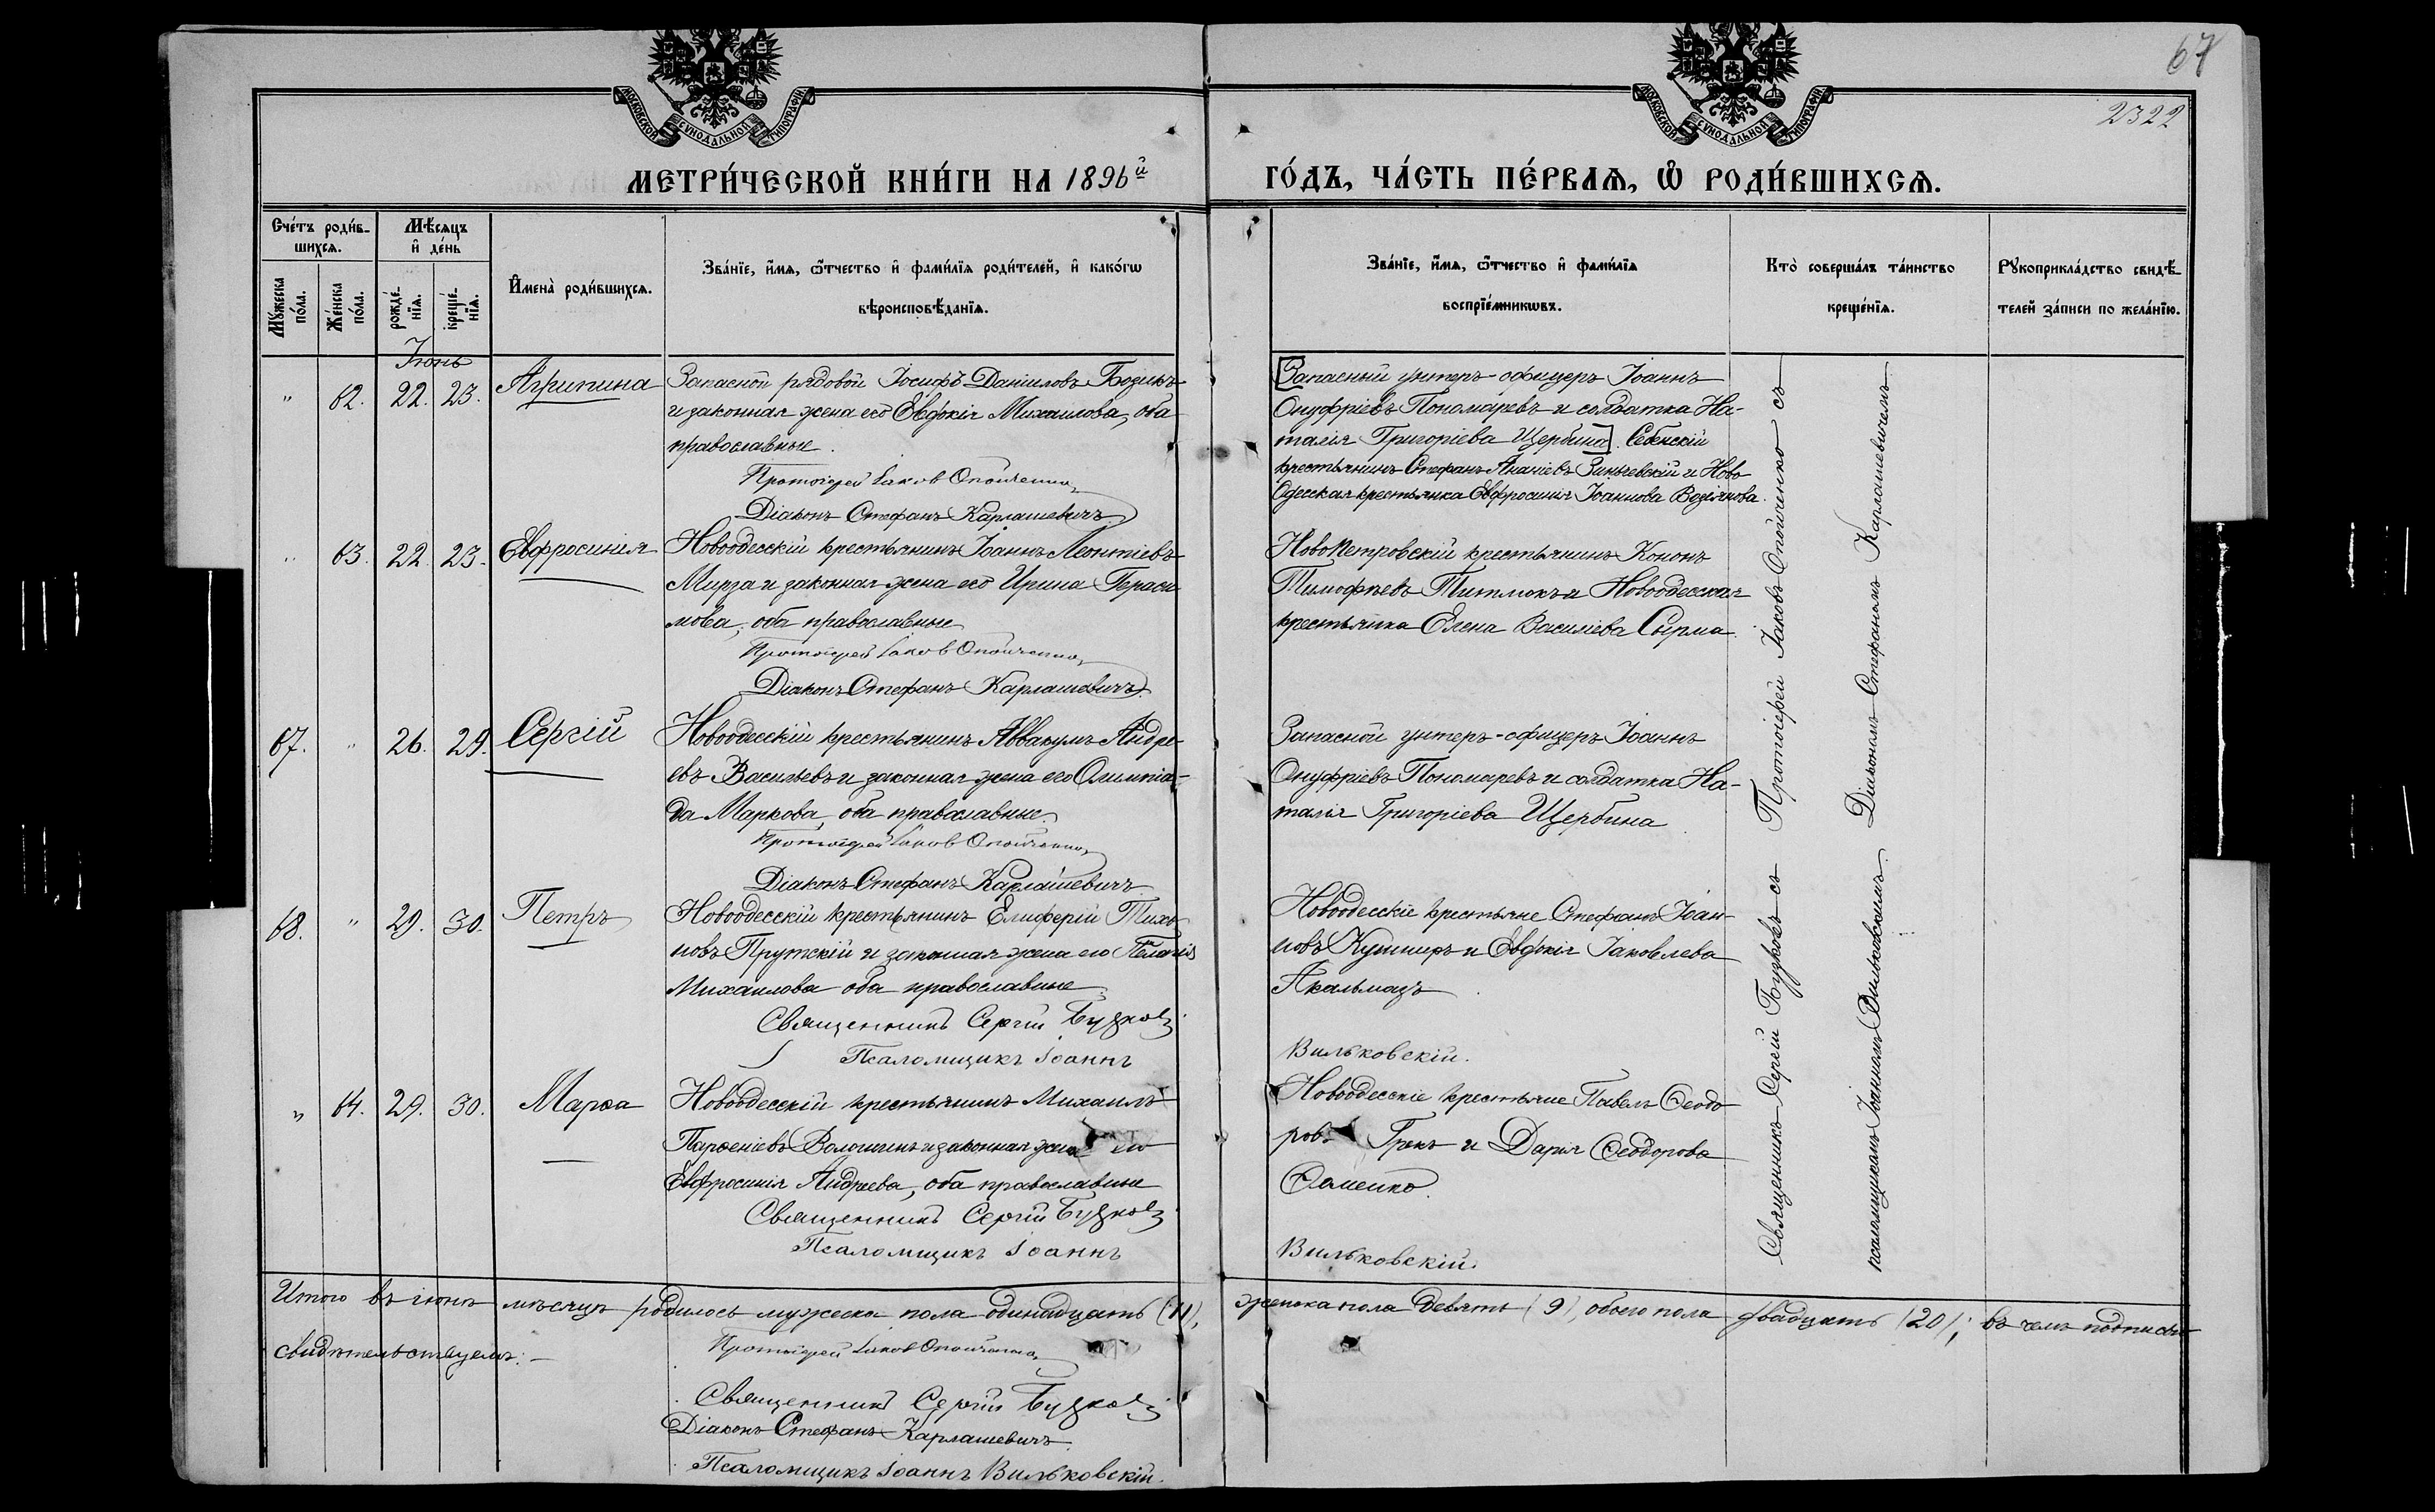 67
2322
МОСКОВСКОЙ СѴНОДАЛЬНОЙ ТИПОГРАФІИ
МОСКОВСКОЙ СѴНОДАЛЬНОЙ ТИПОГРАФІИ
МЕТРИ́ЧЕСКОЙ КНИ́ГИ НА 1896й
ГО́ДЪ, ЧА́СТЬ ПЕ́РВАѦ, Ѽ РОДИ́ВШИХСѦ.
Сче́тъ роди́в-
шихсѧ.
Мѣ́сѧцъ
и҆ де́нь
Мꙋ́жеска по́ла.
Же́нска по́ла.
рожде́-
нїѧ.
креще́-
нїѧ.
И҆мена̀ роди́вшихсѧ.
Зва́нїе, и҆́мѧ, ѻ҆́тчество и҆ фами́лїѧ роди́телей, и҆ како́гѡ
вѣроисповѣ́данїѧ.
Зва́нїе, и҆́мѧ, ѻ҆́тчество и҆ фами́лїѧ
воспрїе́мникѡвъ.
Кто̀ соверша́лъ та́инство
креще́нїѧ.
Рꙋкоприкла́дство свидѣ́-
телей за́писи по жела́нїю.
Іюнь
" 62. 22. 23. Агрипина
Запасной рядовой Іосифъ Даніиловъ Бозикъ
и законная жена его Евдокія Михаилова, оба
православные.
Протоіерей Іаков Опойченко
Діаконъ Стефанъ Карлашевичъ
Запасный унтеръ-офицеръ Іоаннъ
Онуфріевъ Пономаревъ и солдатка На-
талія Григоріева Щербина. Себенскій
крестьянинъ Стефанъ Ананіевъ Зинчевскій и Ново-
Одесская крестьянка Евфросинія Іоаннова Водянова.
" 63. 22. 23. Евфросинія
Новоодесскій крестьянинъ Іоаннъ Леонтіевъ
Мирза и законная жена его Ирина Гераси
мова, оба православные
Протоіерей Іаков Опойченко
Діаконъ Стефанъ Карлашевичъ
НовоПетровскій крестьянинъ Кононъ
Тимофѣевъ Титмокъ и Новоодесская
крестьянка Елена Василіева Сырма.
67. " 26. 29. Сергій
Новоодесскій крестьянинъ Аввакумъ Андре-
евъ Васильевъ и законная жена его Олимпіа-
да Маркова, оба православные.
Протоіерей Іаков Опойченко
Діаконъ Стефанъ Карлашевичъ
Запасной унтеръ-офицеръ Іоаннъ
Онуфріевъ Пономаревъ и солдатка На-
талія Григоріева Щербина
68. " 29. 30. Петръ
Новоодесскій крестьянинъ Елиферій Тихо
новъ Прутскій и законная жена его Пелагія
Михаилова оба православные
Священникъ Сергій Бузковъ
Псаломщикъ Іоаннъ
Новоодесскіе крестьяне Стефанъ Іоан-
новъ Кушниръ и Евдокія Іаковлева
Акальмазъ
Вильковскій.
" 64. 29. 30. Марѳа
Новоодесскій крестьянинъ Михаилъ
Парѳеніевъ Волошинъ и законная жена его
Евфросинія Андреева, оба православные
Священникъ Сергій Бузковъ
Псаломщикъ Іоаннъ
Новоодесскіе крестьяне Павелъ Ѳеодо
ровъ Грекъ и Дарія Ѳеодорова
Ѳоменко.
Вильковскій.
Протоіерей Іаковъ Опойченко съ
Діакономъ Стефаномъ Карлашевичемъ
Священникъ Сергій Бузковъ съ
псаломщикомъ Іоанномъ Вильковскимъ.
Итого въ іюнѣ мѣсяцѣ родилось мужеска пола одинадцать (11), женска пола девять (9), обоего пола двадцать (20), въ чемъ подписью
свидѣтельствуемъ: –
Протоіерей Іаков Опойченко
Священникъ Сергій Бузковъ
Діаконъ Стефанъ Карлашевичъ.
Псаломщикъ Іоаннъ Вильковскій.